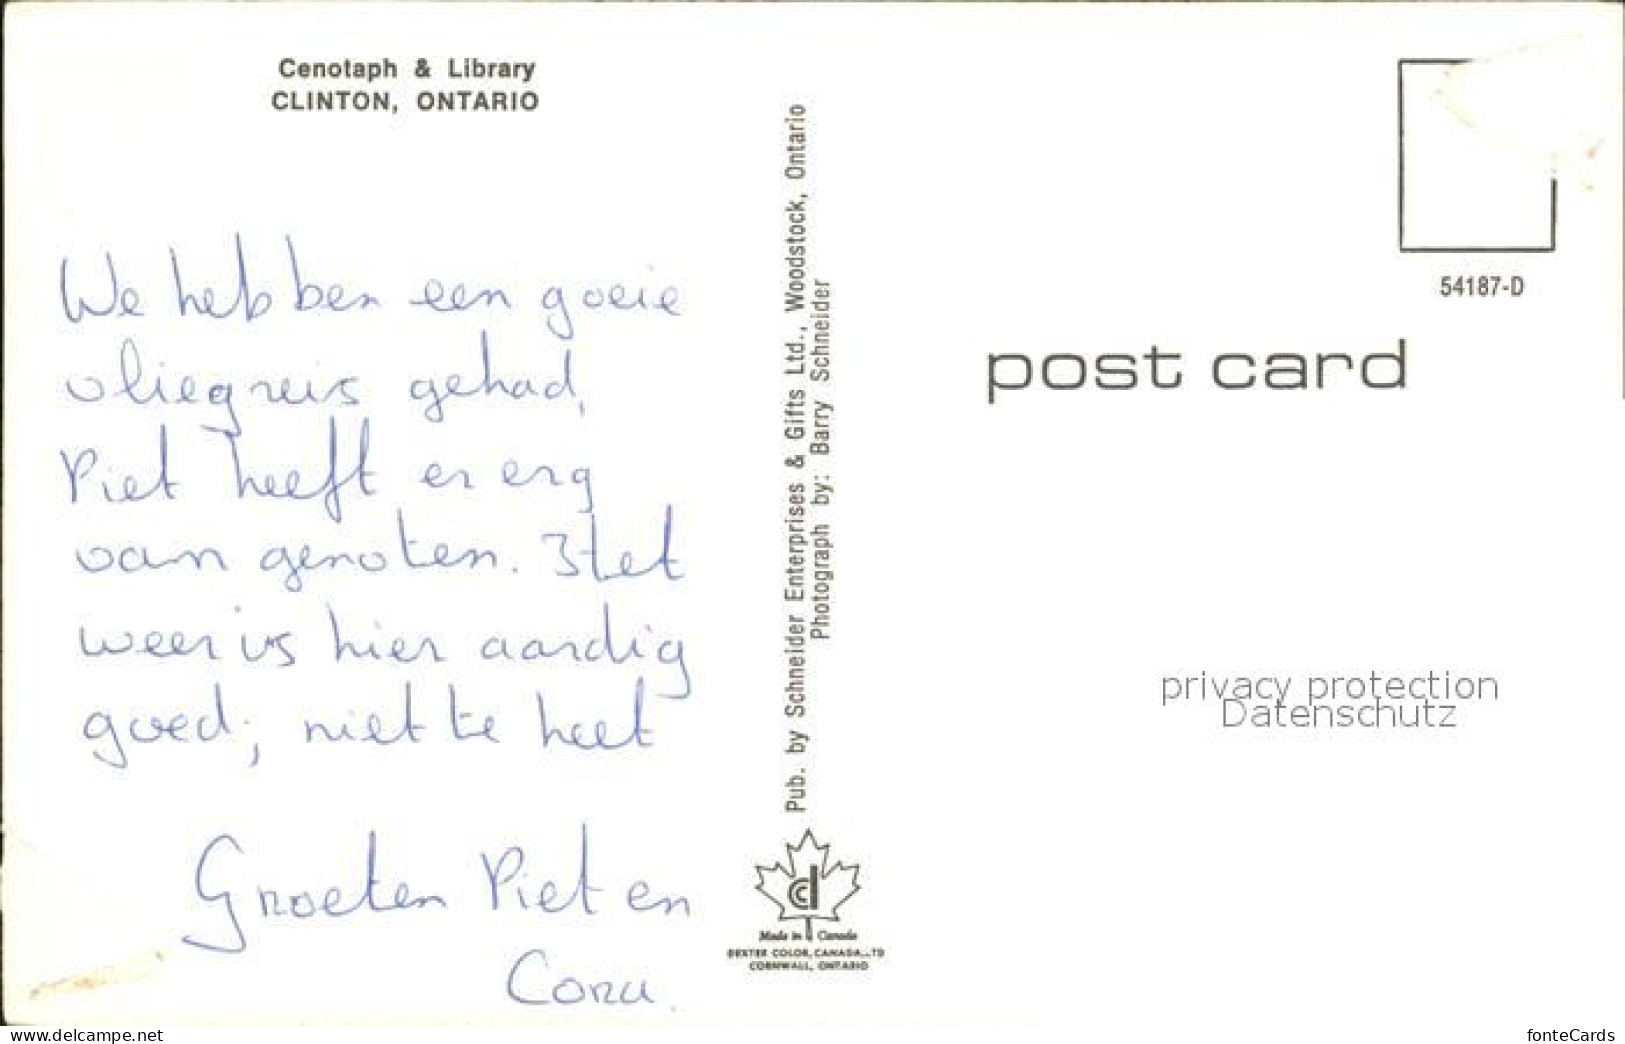 Cenotaph & Library
CLINTON, ONTARIO
We hebben een goeie
vliegreis gehad,
Piet heeft er erg
van genoten. Het
weer is hier aardig
goed; niet te heet
Groeten Piet en
Cora.
Pub. by Schneider Enterprises & Gifts Ltd., Woodstock, Ontario
Photograph by: Barry Schneider
Made in Canada
DEXTER COLOR, CANADA, LTD
CORNWALL, ONTARIO
54187-D
post card
privacy protection
Datenschutz
www.delcampe.net
fonteCards